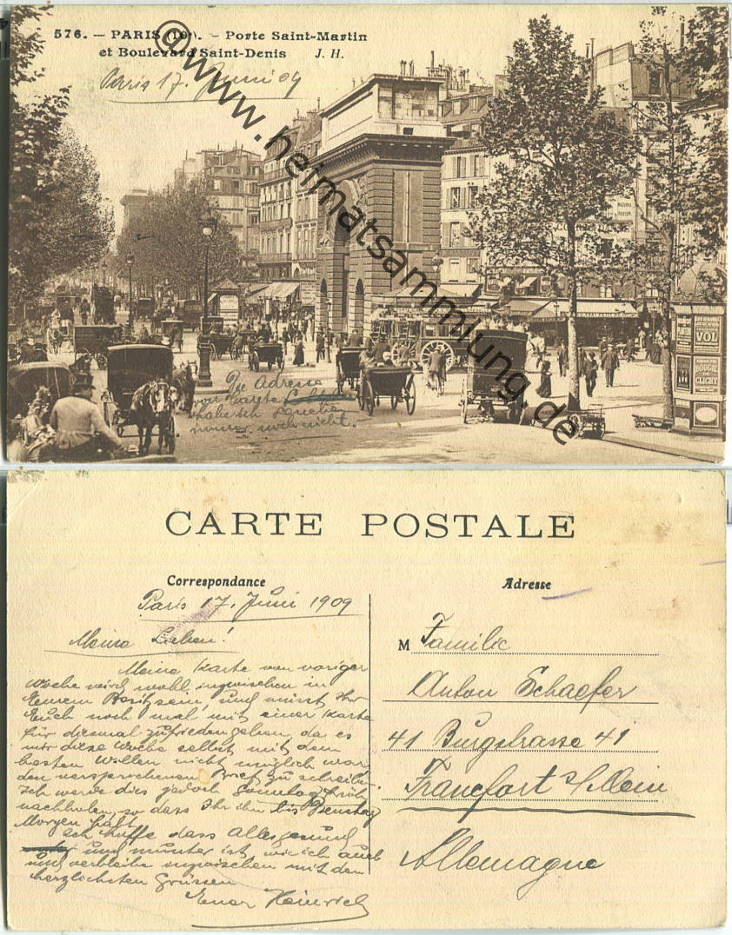 576. — PARIS (10e). - Porte Saint-Martin
et Boulevard Saint-Denis J. H.
Paris 17. Juni 09
©www.heimatsammlung.de
Die Adresse
von
habe ich
immer noch nicht.
VOL
CARTE POSTALE
Correspondance
Adresse
Paris 17. Juni 1909
Meine Lieben!
Meine Karte von voriger
Woche wird wohl inzwischen in
Eurem Besitz sein, und müsst Ihr
Euch noch mal mit einer Karte
für diesmal zufriedengeben da es
mir diese Woche selbst mit dem
besten Willen nicht möglich war
den versprochenen Brief zu schreiben.
Ich werde dies jedoch Sonntag früh
nachholen, so dass Ihr ihn bis Dienstag
Morgen habt.
Ich hoffe dass Alles gesund
und munter ist, wie ich auch
und verbleibe inzwischen mit den
herzlichsten Grüssen
Euer Heinrich
M Familie
Anton Schaefer
41 Burgstrasse 41
Francfort s/Mein
Allemagne